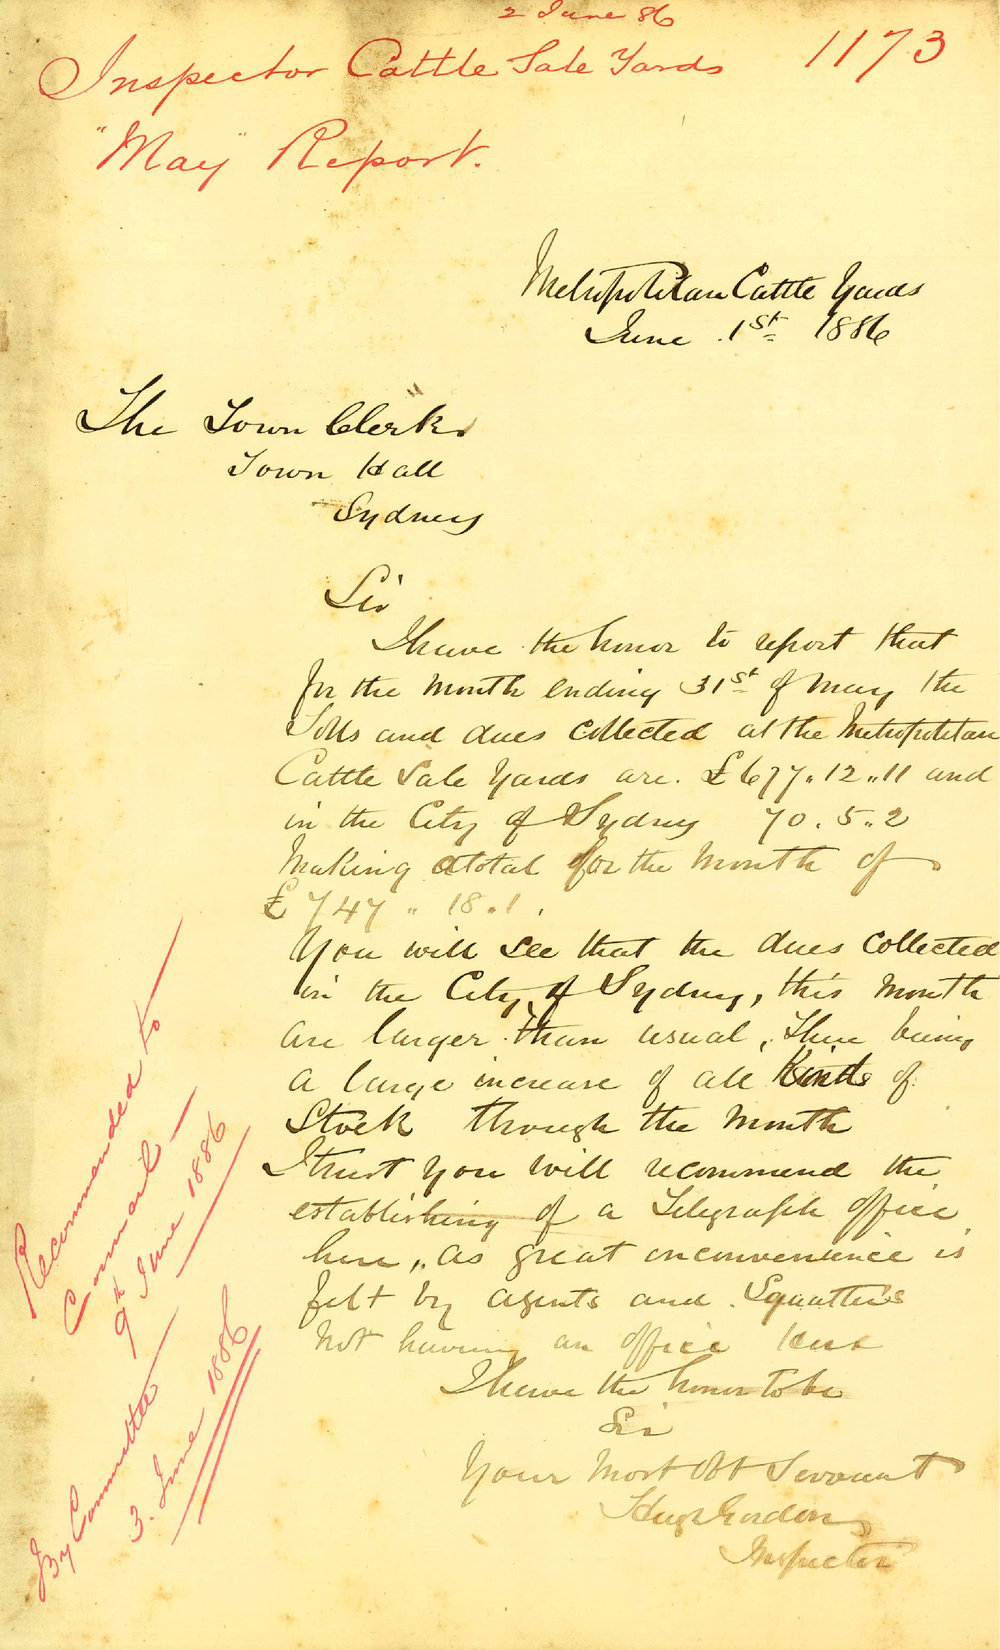 2 June 86
Inspector Cattle Sale Yards 1173
"May" Report.
Metropolitan Cattle Yards
June 1st 1886
The Town Clerk
Town Hall
Sydney
Sir
I have the honor to report that
for the Month ending 31st of May the
Tolls and dues collected at the Metropolitan
Cattle Sale Yards are. £677..12..11 and
in the City of Sydney 70.5..2
Making a total for the Month of
£747..18.1.
You will see that the dues collected
in the City of Sydney, this Month
are larger than usual, There being
a large increase of all Kinds of
Stock through the Month
I trust you will recommend the
establishing of a Telegraph office
here,, as great inconvenience is
felt by agents and Squatters
Not having an office here
I have the honor to be
Sir
Your Most Obt Servant
Hugh Gordon
Inspector
Recommended to
Council —
9th June 1886
By Committee
3. June 1886